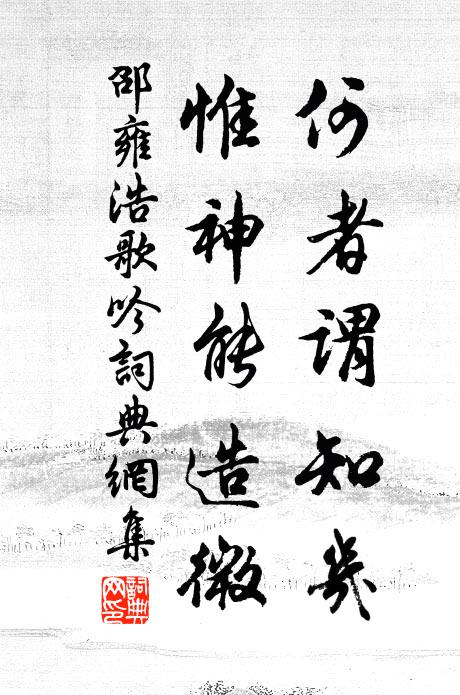 何者謂知幾
惟神能造微
邵雍浩歌吟詞典網集
詞典网印